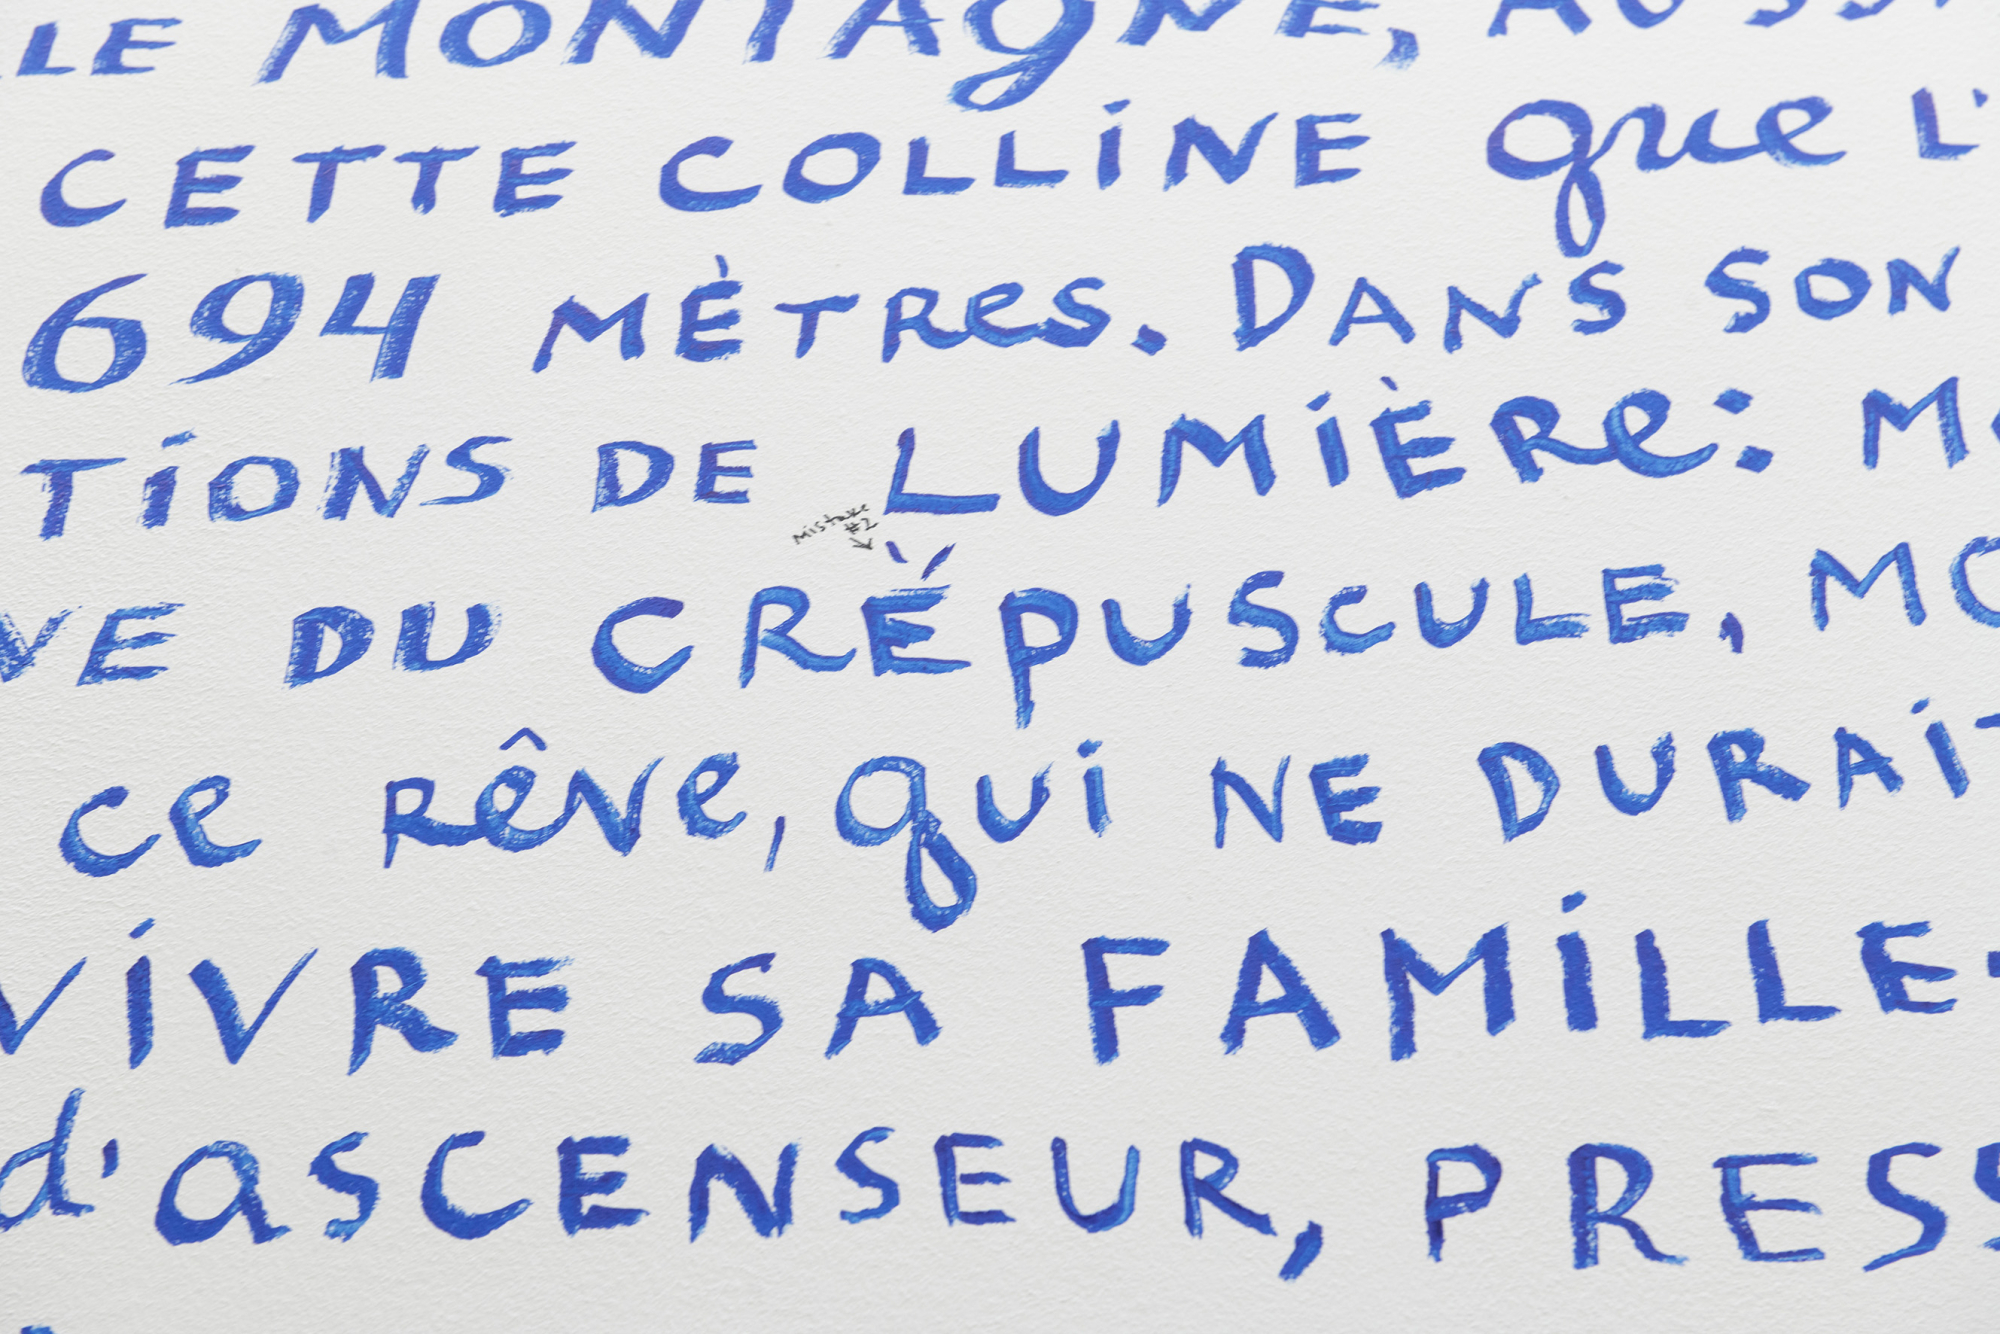 LE MONTAGNE,
CETTE COLLINE que L'
694 MÈTRes. DANS SON
TIONS DE LUMIÈRe:
mistake
#2
↓
DU CRÉPUSCULE,
ce RêVe, qui NE DURAIT
VIVRE SA FAMILLE
d'aSCENSEUR, PRESS